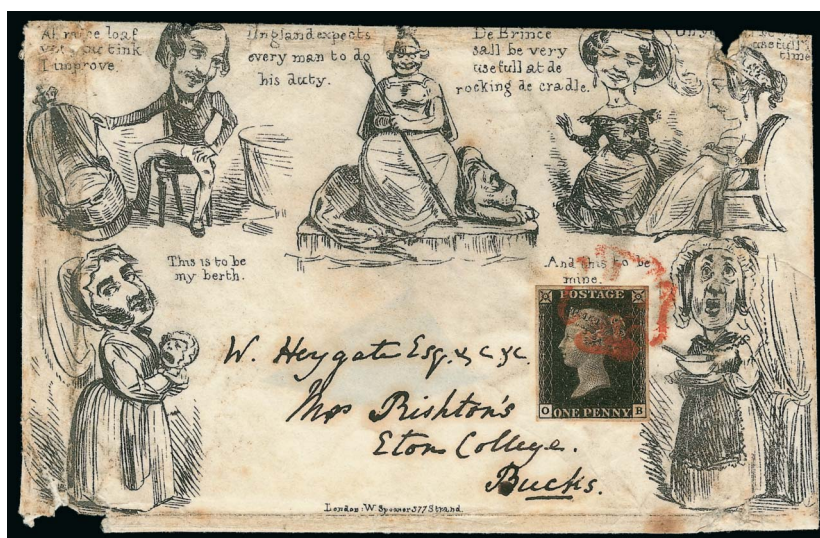 loaf
tink
I improve.
England expects
every man to do
his duty.
De Brince
sall be very
usefull at de
rocking de cradle.
usefull
time
This is to be
my berth.
And this to be
mine.
POSTAGE
O B
ONE PENNY
W. Heygate Esq. &c &c.
Mrs Rishton's
Eton College.
Bucks.
London: W Spooner 377 Strand.